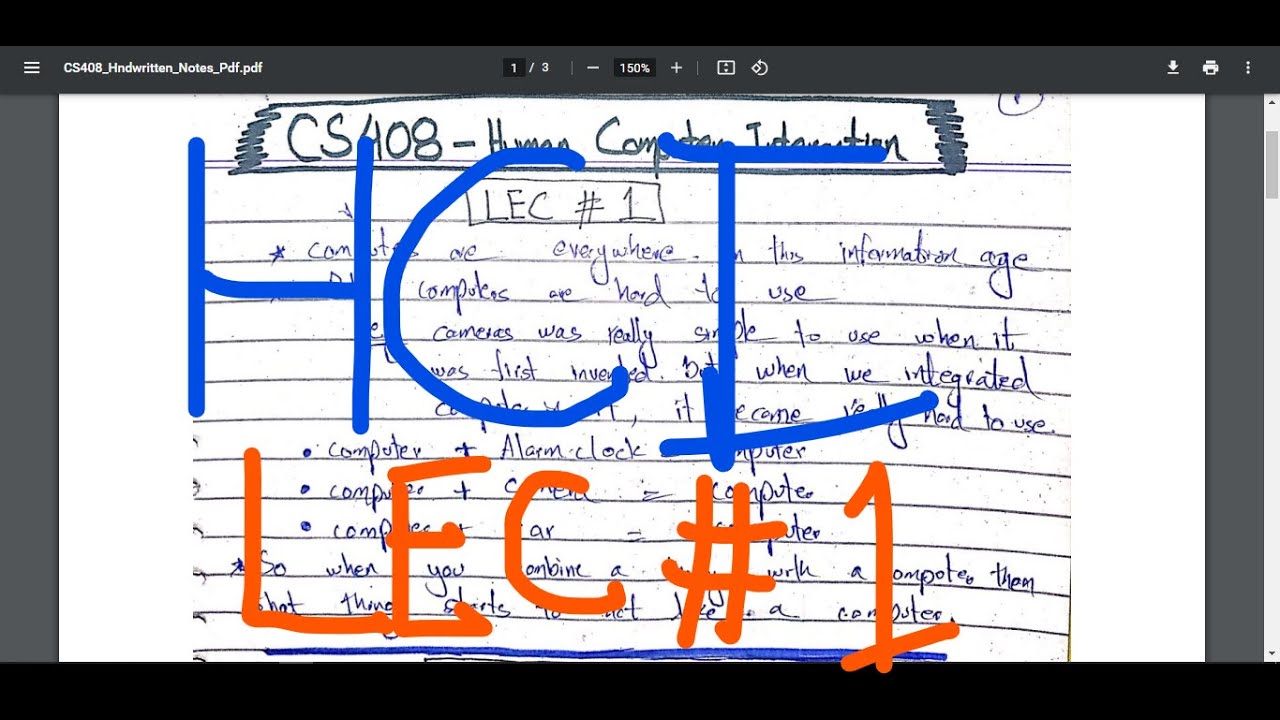 CS408_Hndwritten_Notes_Pdf.pdf
1 / 3
150%
CS408 - Human Computer Interaction
LEC # 1
* computers are everywhere. In this information age
computers are hard to use
cameras was really simple to use when it
was first invented. But when we integrated
computer it, it became really hard to use.
• computer + Alarm clock = computer
• computer + camera = computer
• computer + car = computer
* So when you combine a thing with a computer then
that thing starts to act like a computer.
HCI
LEC # 1